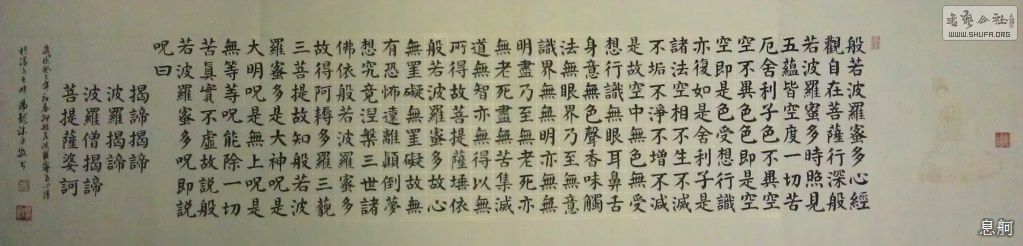 般若波羅蜜多心經
觀自在菩薩行深般
若波羅蜜多時照見
五蘊皆空度一切苦
厄舍利子色不異空
空不異色色即是空
空即是色受想行識
亦復如是舍利子是
諸法空相不生不滅
不垢不淨不增不減
是故空中無色無受
想行識無眼耳鼻舌
身意無色聲香味觸
法無眼界乃至無意
識界無無明亦無無
明盡乃至無老死亦
無老死盡無苦集滅
道無智亦無得以無
所得故菩提薩埵依
般若波羅蜜多故心
無罣礙無罣礙故無
有恐怖遠離顛倒夢
想究竟涅槃三世諸
佛依般若波羅蜜多
故得阿耨多羅三藐
三菩提故知般若波
羅蜜多是大神呪是
大明呪是無上呪是
無等等呪能除一切
苦眞實不虛故說般
若波羅蜜多呪即說
呪曰
揭諦揭諦
波羅揭諦
波羅僧揭諦
菩提薩婆訶
WWW.SHUFA.ORG
息舸